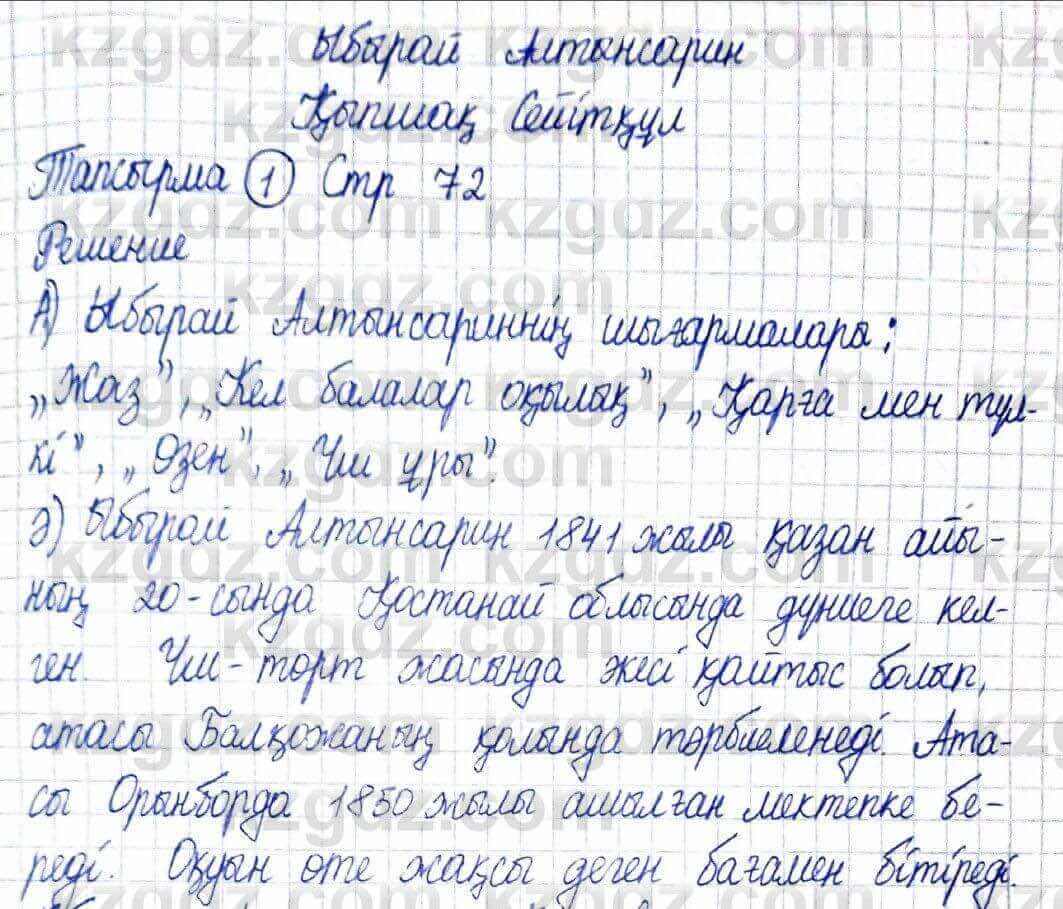 Ыбырай Алтынсарин
Қыпшақ Сейітқұл
Тапсырма 1 Стр 72
Решение
А) Ыбырай Алтынсариннің шығармалары:
„Жаз", „Кел балалар оқылық", „Қарға мен түл-
кі", „Өзен", „Үш ұры".
Ә) Ыбырай Алтынсарин 1841 жылы қазан айы-
ның 20-сында Қостанай облысында дүниеге кел-
ген. Үш-төрт жасында әкесі қайтыс болып,
атасы Балқожаның қолында тәрбиеленеді. Ата-
сы Орынборда 1850 жылы ашылған мектепке бе-
реді. Оқуын өте жақсы деген бағамен бітіреді.
kzgdz.com